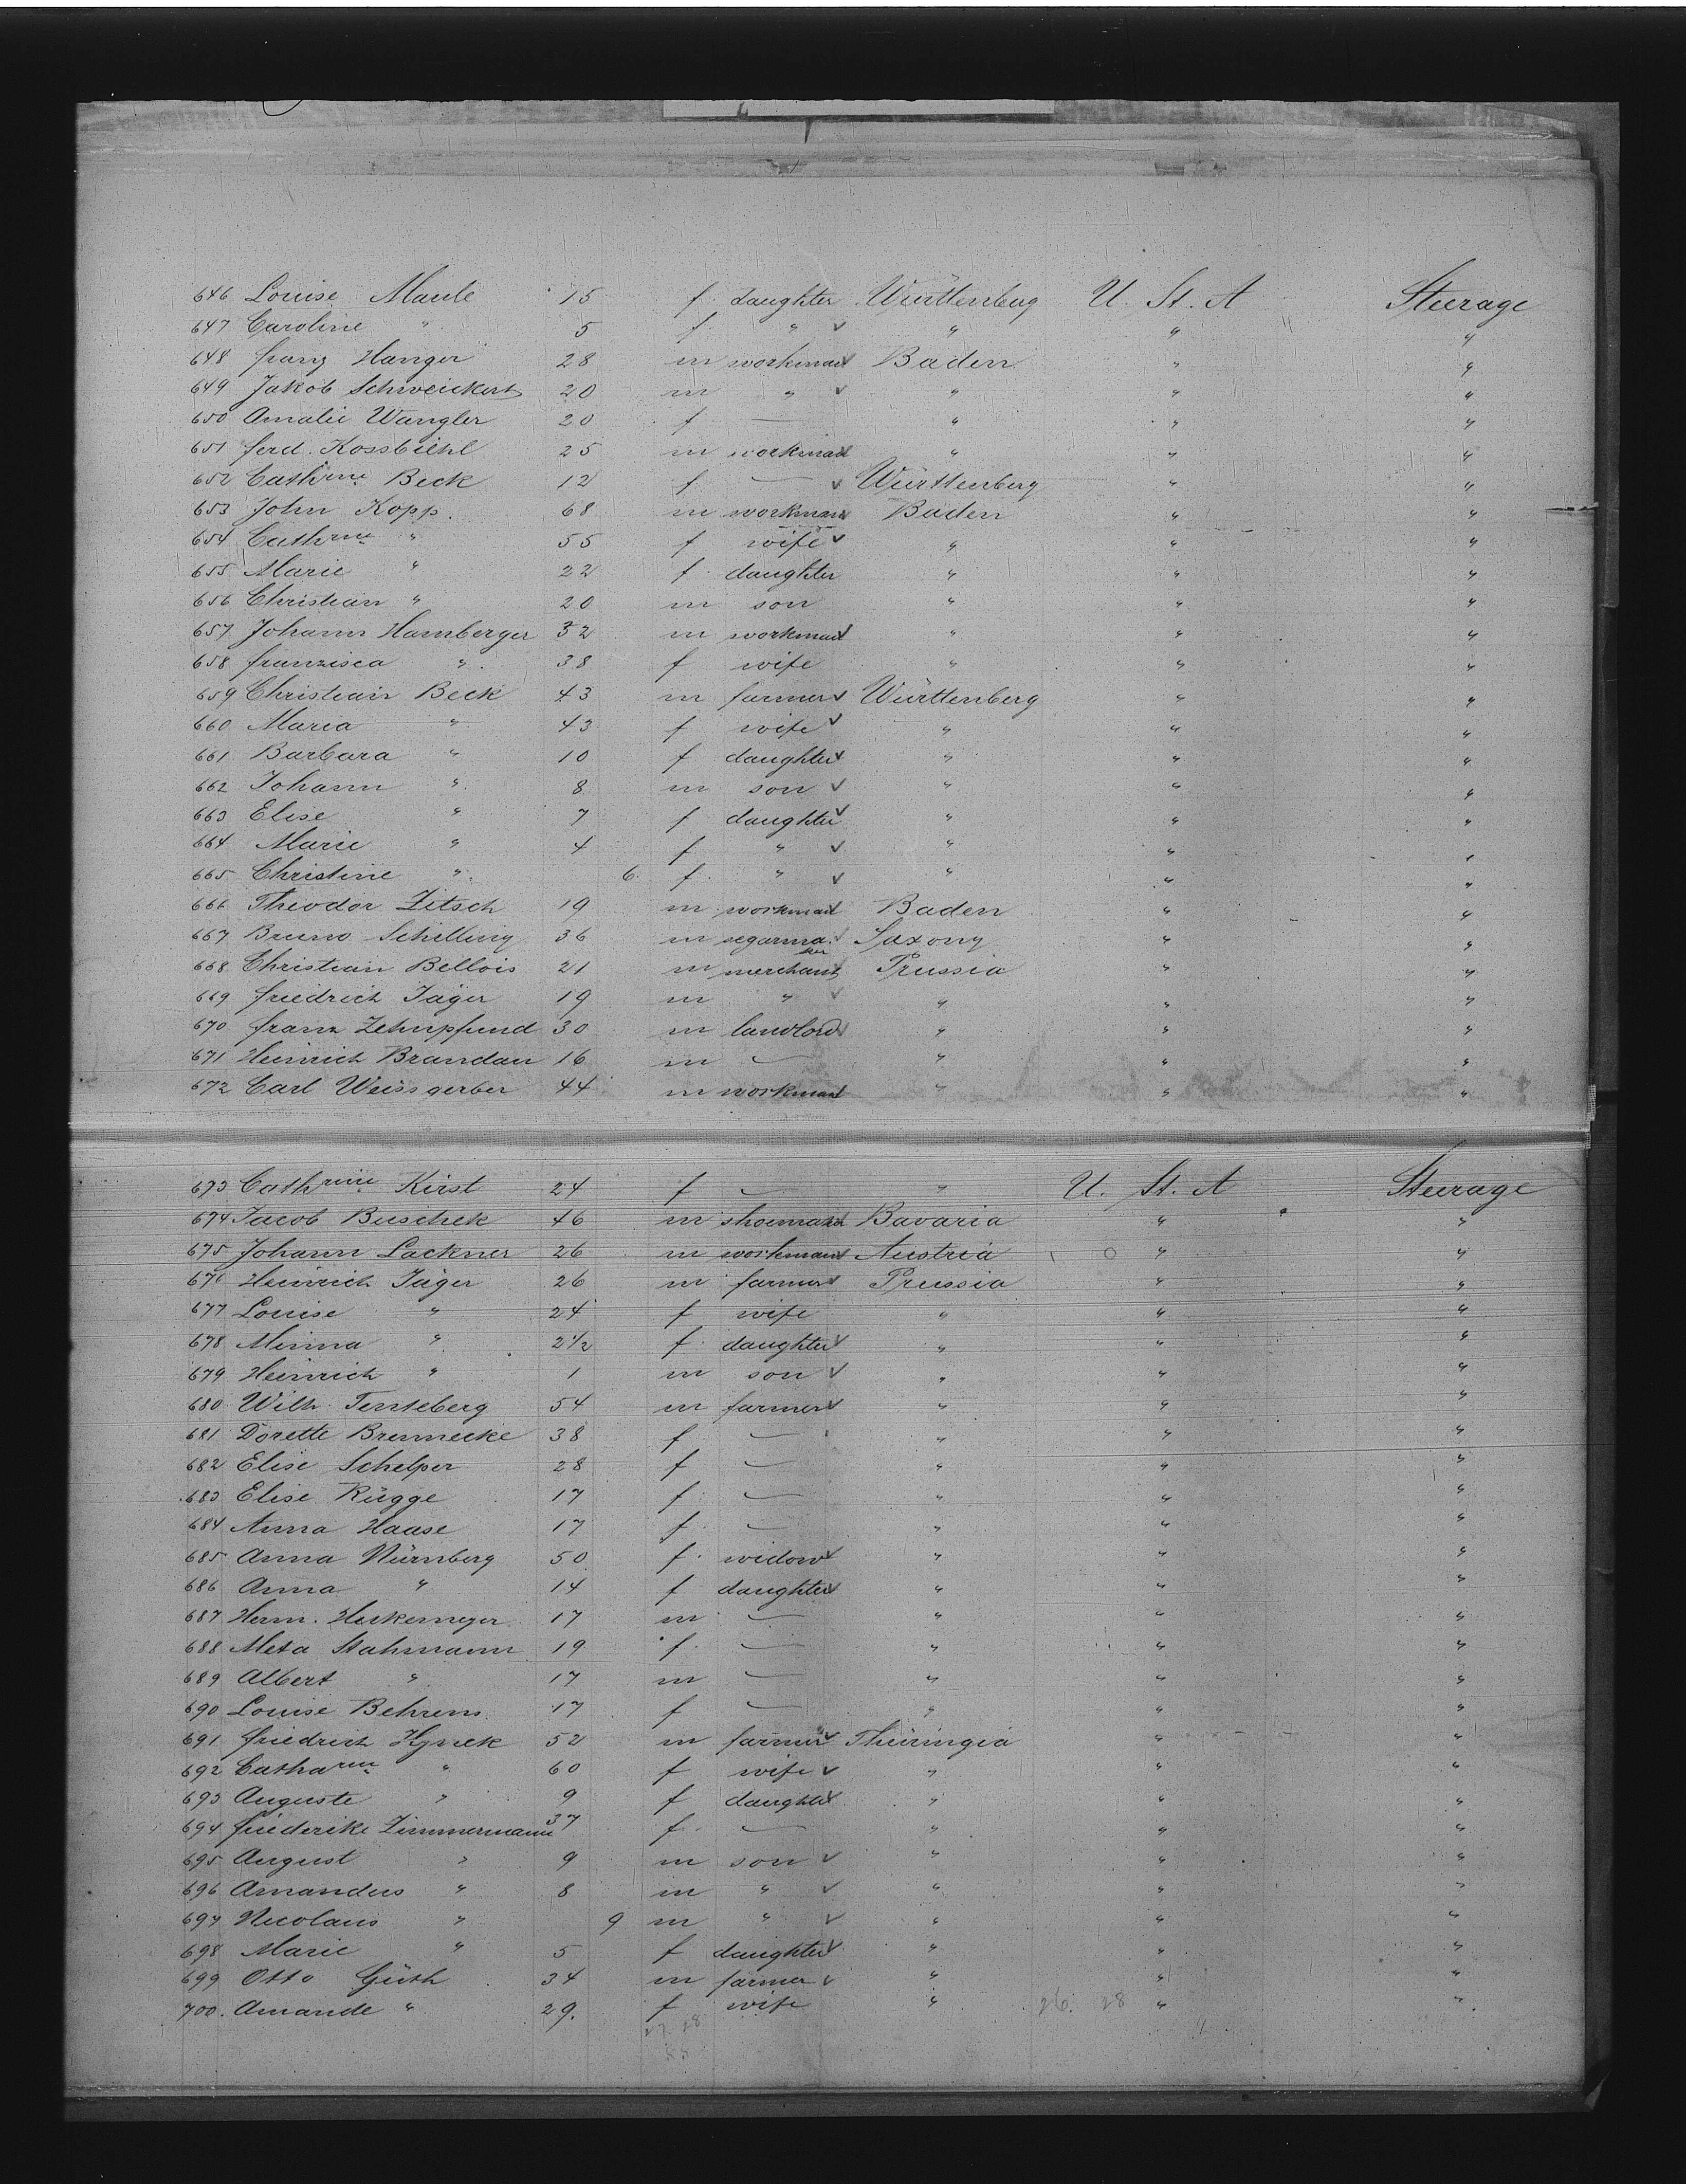 646 Louise Maule 15 f daughter Württenberg U. St. A Steerage
647 Caroline " 5 f. " " " "
648 franz Hanger 28 m workman Baden " "
649 Jakob Schweickert 20 m " " " "
650 Amalie Wangler 20 f — " " "
651 ferd. Kossbiehl 25 m workman " " "
652 Cathrine Beck 12 f — Württenberg " "
653 John Kopp. 68 m workman Baden " "
654 Cathrine " 55 f wife " " "
655 Marie " 22 f. daughter " " "
656 Christian " 20 m son " " "
657 Johann Hamberger 32 m workman " " "
658 franzisca " 38 f wife " " "
659 Christian Beck 43 m farmer Württenberg " "
660 Maria " 43 f wife " " "
661 Barbara " 10 f daughter " " "
662 Johann " 8 m son " " "
663 Elise " 7 f daughter " " "
664 Marie " 4 f " " " "
665 Christine " 6 f. " " " "
666 Theodor Zitsch 19 m workman Baden " "
667 Bruno Schilling 36 m segarmaker Saxony " "
668 Christian Bellois 21 m merchant Prussia " "
669 friedrich Jäger 19 m " " " "
670 franz Zehnpfund 30 m landlord " " "
671 Heinrich Brandau 16 m — " " "
672 Carl Weissgerber 44 m workman " " "
673 Cathrine Kirst 24 f — " U. St. A Steerage
674 Jacob Buschek 46 m shoemaker Bavaria " "
675 Johann Lackner 26 m workman Austria " "
676 Heinrich Jäger 26 m farmer Prussia " "
677 Louise " 24 f wife " " "
678 Minna " 2 1/2 f. daughter " " "
679 Heinrich " 1 m son " " "
680 Wilh. Tenteberg 54 m farmer " " "
681 Dorette Brennecke 38 f — " " "
682 Elise Schelper 28 f — " " "
683 Elise Rügge 17 f. — " " "
684 Anna Haase 17 f. — " " "
685 Anna Nürnberg 50 f. widow " " "
686 Anna " 14 f daughter " " "
687 Herm. Heckemeyer 17 m — " " "
688 Meta Stahmann 19 f. — " " "
689 Albert " 17 m — " " "
690 Louise Behrens. 17 f — " " "
691 friedrich Hynek 52 m farmer Thüringia " "
692 Catharine " 60 f wife " " "
693 Auguste " 9 f daughter " " "
694 friederike Zimmermann 37 f — " " "
695 August " 9 m son " " "
696 Amandus " 8 m " " " "
697 Nicolaus " 9 m " " " "
698 Marie " 5 f daughter " " "
699 Otto Güth 34 m farmer " " "
700. Amande " 29. f wife " 26. 28 " "
27. 28